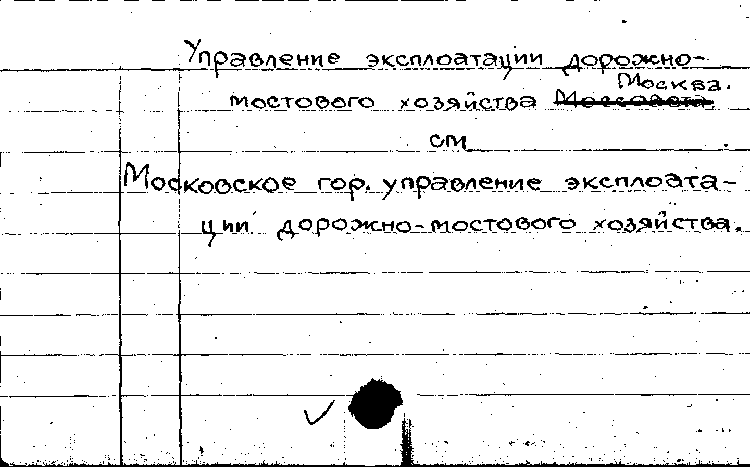 Управление эксплоатации дорожно-
Москва.
мостового хозяйства Моссовета
см
Московское гор. управление эксплоата-
ции дорожно-мостового хозяйства.